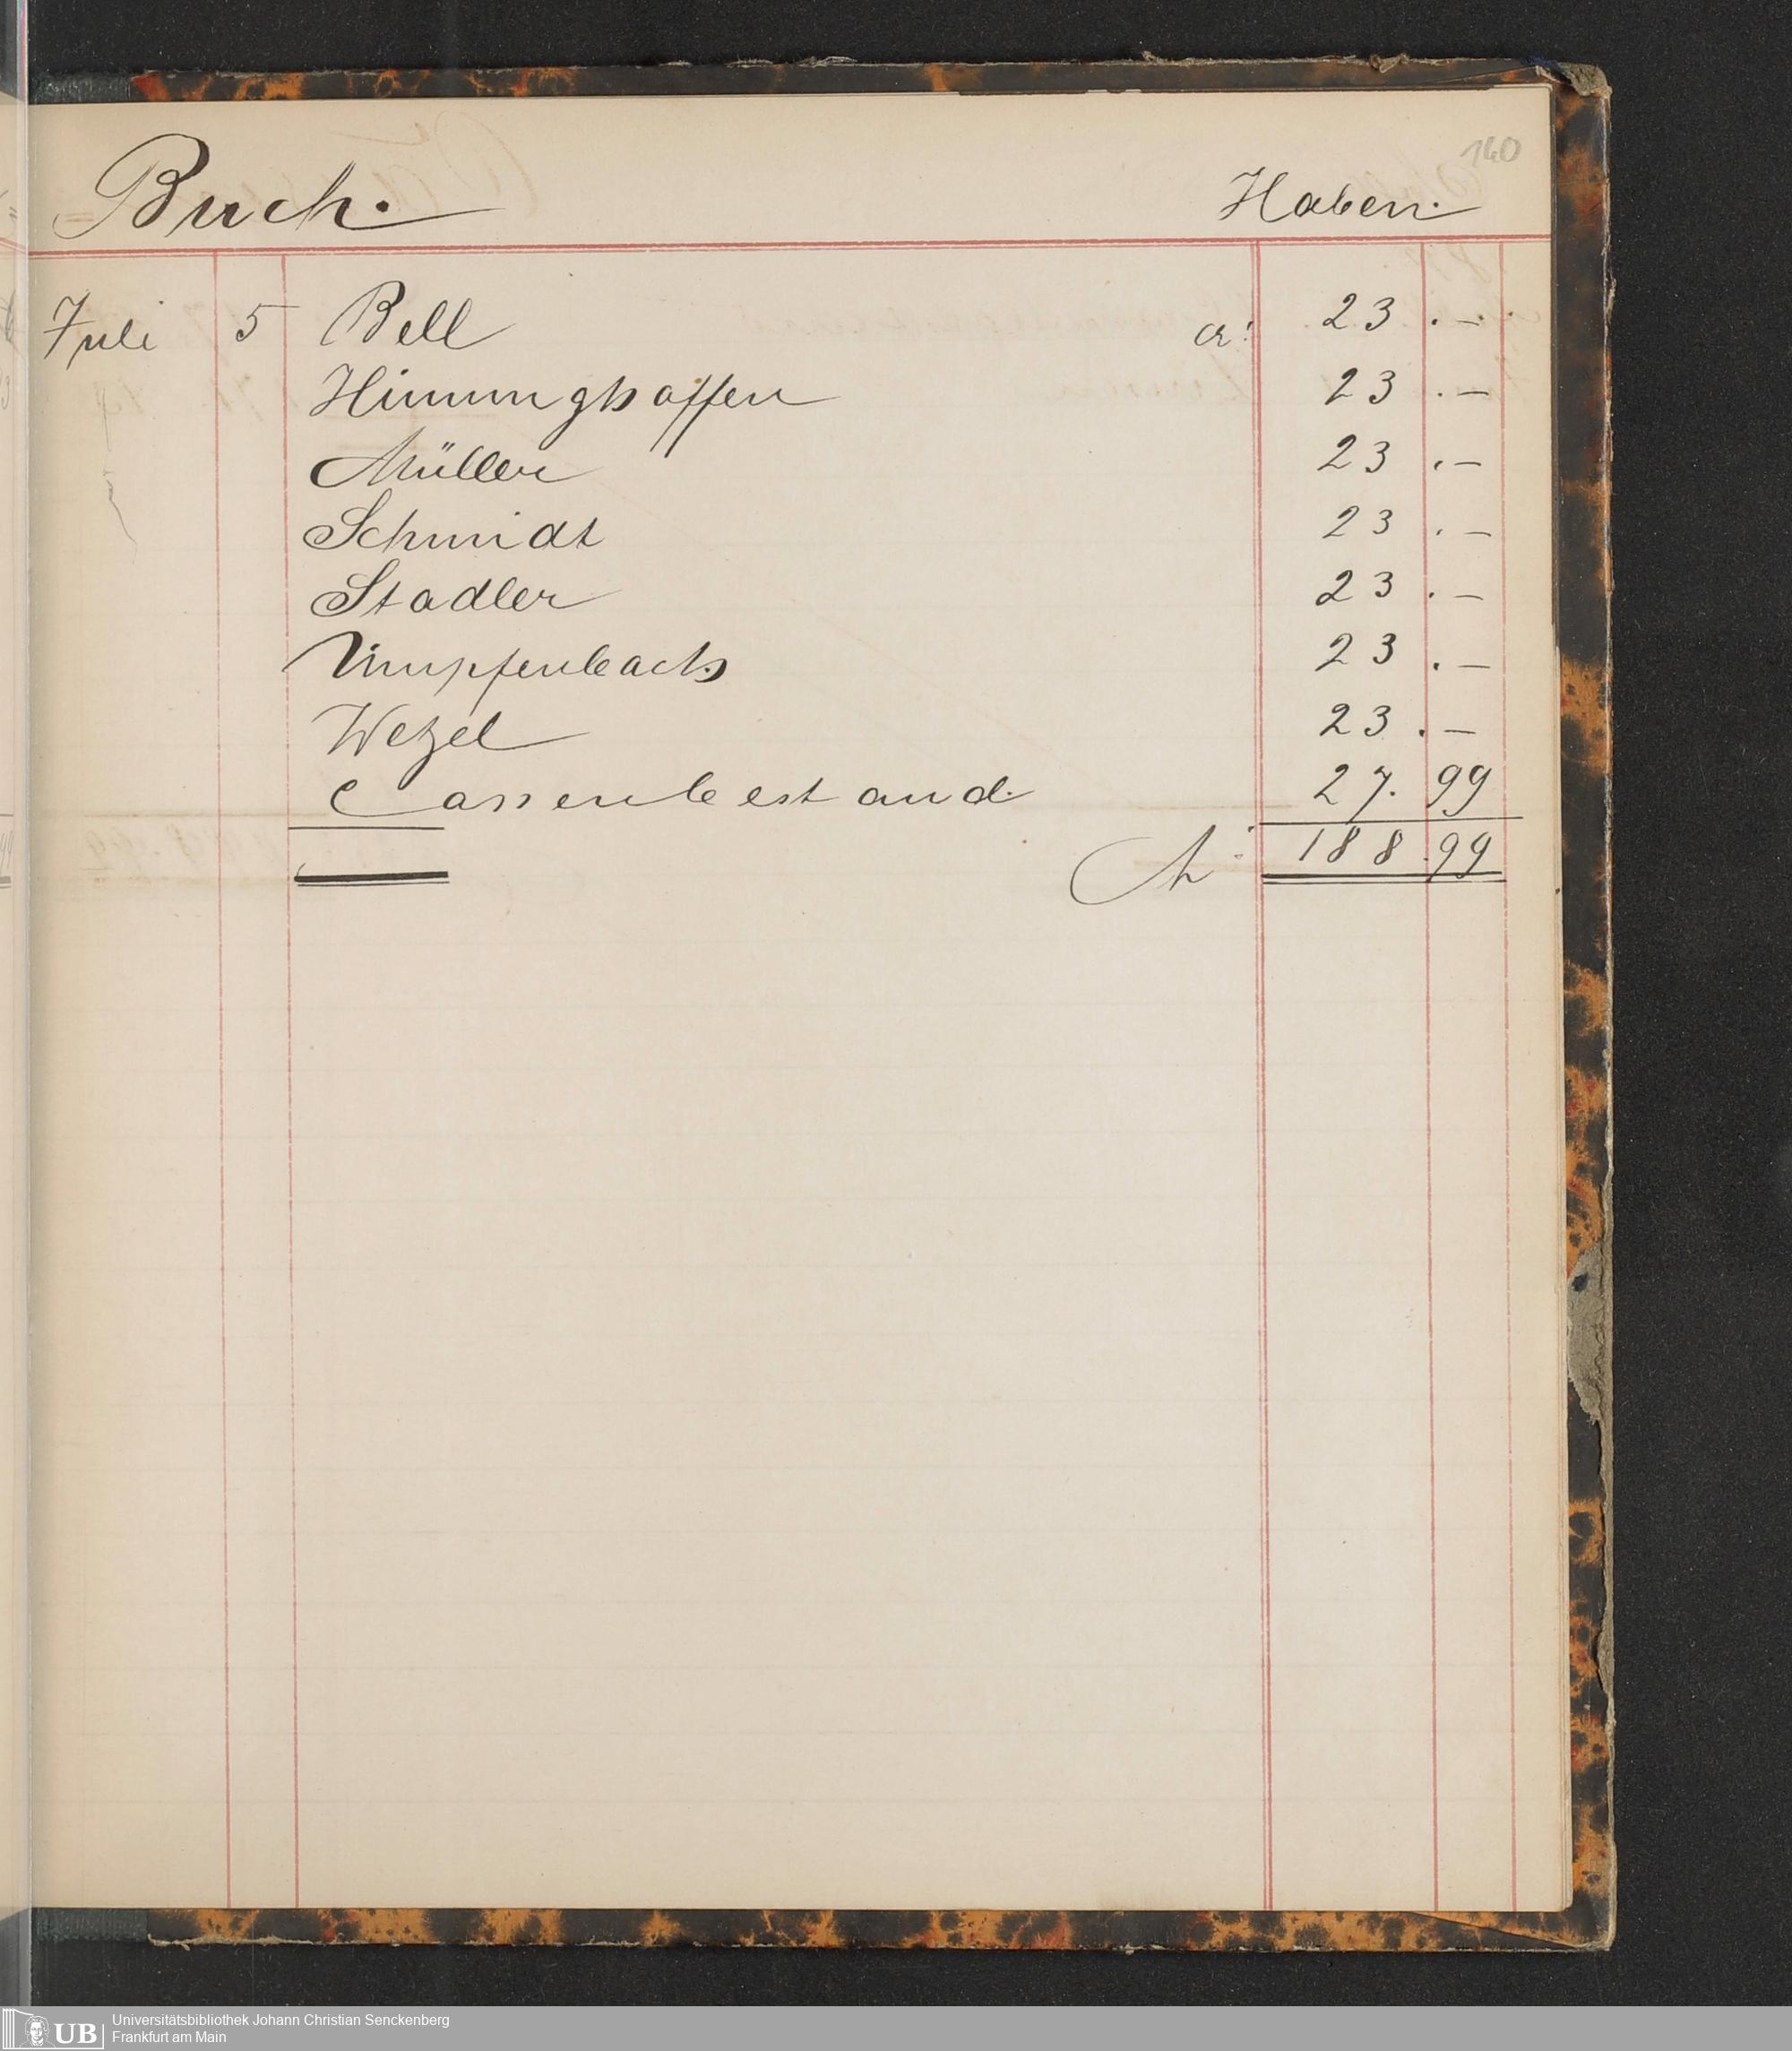 140
Buch. Haben.
Juli 5 Bell a: 23 . —
Himminghoffen 23 . —
Müller 23 . —
Schmidt 23 . —
Stadler 23 . —
Umpfenbach 23 . —
Wetzel 23 . —
Cassenbestand. 27. 99
M: 188.99
UB Universitätsbibliothek Johann Christian Senckenberg
Frankfurt am Main